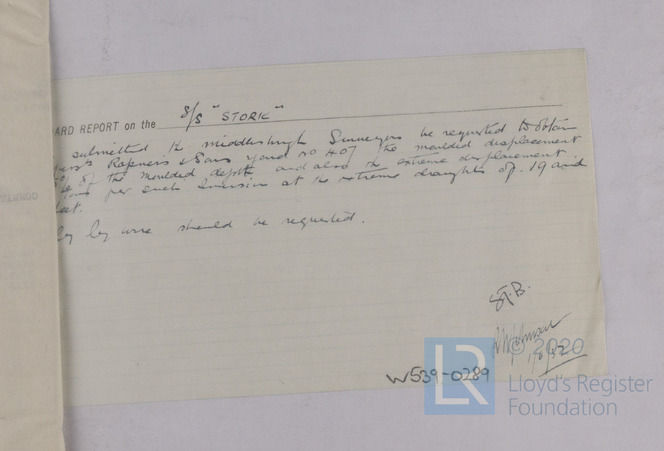 ARD REPORT on the S/S "STORK"
submitted the Middlesbrough Surveyors be requested to obtain
Messrs Ropners & Sons yard No 407 the moulded displacement
of the moulded depth, and also the extreme displacement
per inch immersion at the extreme draughts of 19 and
feet.
by wire should be requested.
S.F.B.
W539-0289
© 2020
LR
Lloyd's Register
Foundation